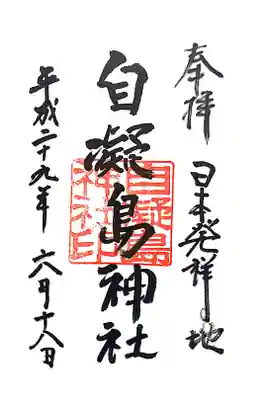 奉拝
日本発祥の地
自凝島神社
自凝島神社印
平成二十九年 六月十八日